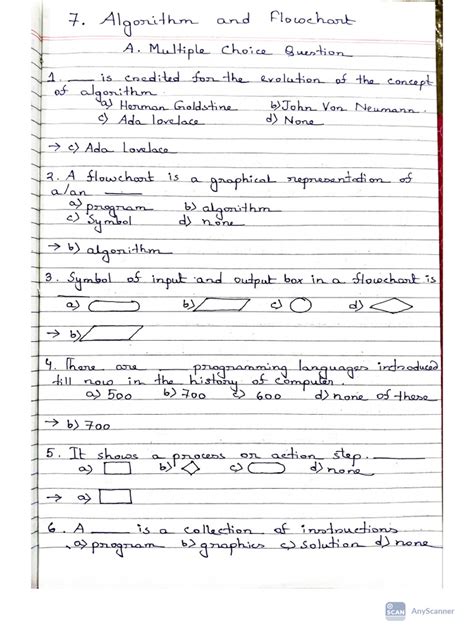 7. Algorithm and Flowchart
A. Multiple Choice Question
1. ___ is credited for the evolution of the concept
of algorithm.
a) Herman Goldstine b) John Von Neumann.
c) Ada lovelace d) None
→ c) Ada lovelace
2. A flowchart is a graphical representation of
a/an ____
a) program b) algorithm
c) Symbol d) none
→ b) algorithm
3. Symbol of input and output box in a flowchart is
a) b) c) d)
→ b)
4. There are ____ programming languages introduced
till now in the history of computer.
a) 500 b) 700 c) 600 d) none of these
→ b) 700
5. It shows a process or action step. ____
a) b) c) d) none
→ a)
6. A ____ is a collection of instructions
a) program b) graphics c) solution d) none
SCAN AnyScanner